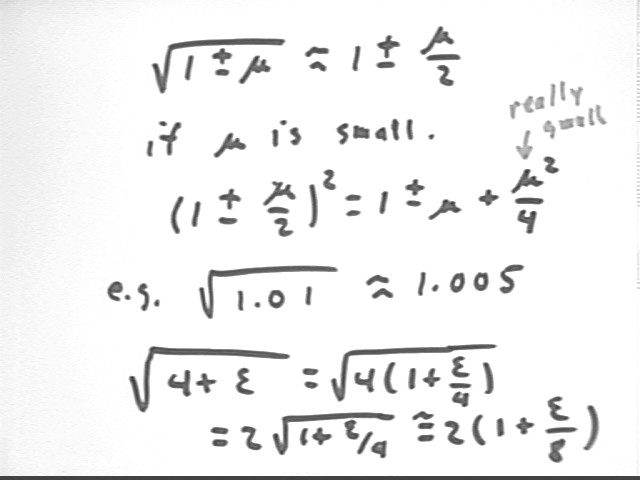 √(1 ± μ) ≈ 1 ± μ/2
if μ is small.
really
small
(1 ± μ/2)² = 1 ± μ + μ²/4
e.g. √1.01 ≈ 1.005
√(4 + ε) = √(4(1 + ε/4))
= 2√(1 + ε/4) ≅ 2(1 + ε/8)